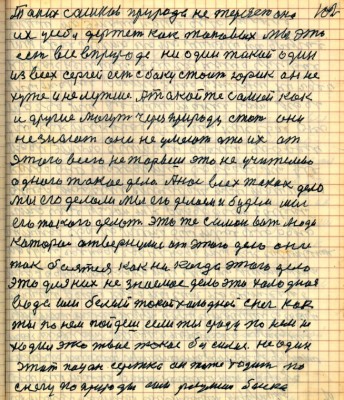 таких сашков природа не терпет она
их у себя держет как таковых мы это
есть все в природе ни один такой один
из всех сергей есть сбоку стоит юрик он не
хуже и не лутше а такой же самый как
и другие могут через природу стот они
не знают они не умеют это их от
этого всего не это не учительво
одного такое дело А нас всех таках дело
мы его делали мы его делаем и будем мы
его такого делот это же самои вот люди
каторые отвернулися от этого дело они
так боятся как ни когда этого дело
это для них не знаемое дело это холодная
вода или белый такой холодной снег как
ты по нем пойдеш если ты сроду по нем не
ходил это твое такое бу сило. не один
этот пацан сережка он тоже ходит по
снегу по природы они